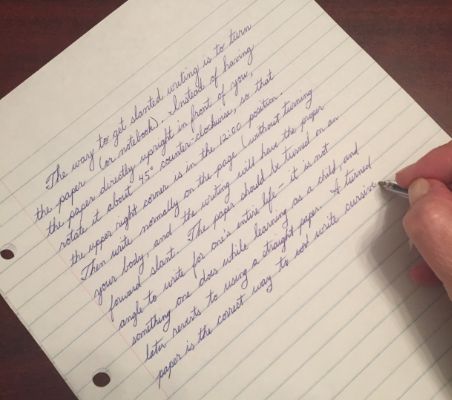 The way to get slanted writing is to turn
the paper (or notebook). Instead of having
the paper directly upright in front of you,
rotate it about 45° counter-clockwise, so that
the upper right corner is in the 12:00 position.
Then write normally on the page (without turning
your body, and the writing will have the proper
forward slant. The paper should be turned on an
angle to write for one's entire life - it is not
something one does while learning as a child, and
later reverts to using a straight paper. A turned
paper is the correct way to write cursive